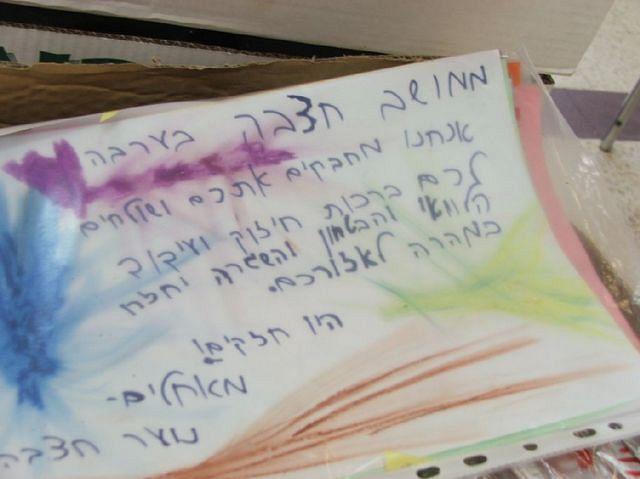 ממושב חצבה בערבה
אנחנו מחבקים אתכם ושולחים
לכם ברכות חיזוק ועידוד
הלוואי והבטחון והשגרה יחזרו
במהרה לאזורכם.
היו חזקים!
מאחלים-
נוער חצבה